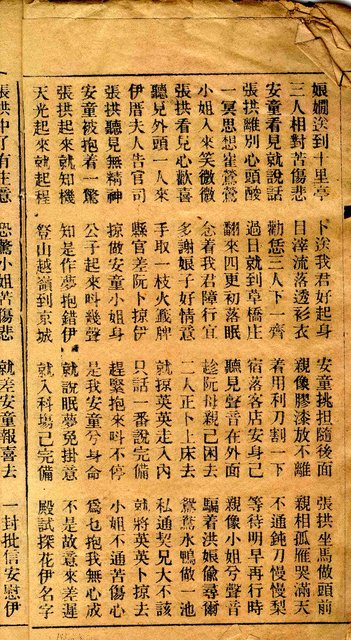 娘嫺送到十里亭 卜送我君好起身 安童挑担隨後面 張拱坐馬做頭前
三人相對苦傷悲 目滓流落透衫衣 親像膠漆放不離 親相孤雁哭滿天
安童看見就說話 勸恁二人卜一齊 着用利刀割一下 不通鈍刀慢慢犁
張拱離別心頭酸 過日就到草橋庄 宿落客店安身己 等待明早再行時
一冥思想崔鶯鶯 翻來四更初落眠 聽見聲音在外面 親像小姐兮聲音
小姐入來笑微微 念着我君障行宜 趁阮母親己困去 騙着洪娘偸尋爾
張拱看見心歡喜 多謝娘子好情意 二人正卜上床去 鴛鴦水鴨做一池
聽見外頭一人來 手取一枝火籤牌 就掠英英走入內 私通契兄大不該
伊厝夫人告官司 縣官差阮卜掠伊 只話一番說完備 就將英英卜掠去
張拱聽見無精神 掠做安童小姐身 趕緊抱來叫不停 小姐不通苦傷心
安童被抱着一驚 公子起來叫幾聲 是我安童兮身命 爲乜抱我無心成
張拱起來就知機 知是作夢抱錯伊 就說眠夢免掛意 不是故意來差遲
天光起來就起程 登山越嶺到京城 就入科場己完備 殿試探花伊名字
張拱中了有主意 恐驚小姐苦傷悲 就差安童報喜去 一封批信安慰伊